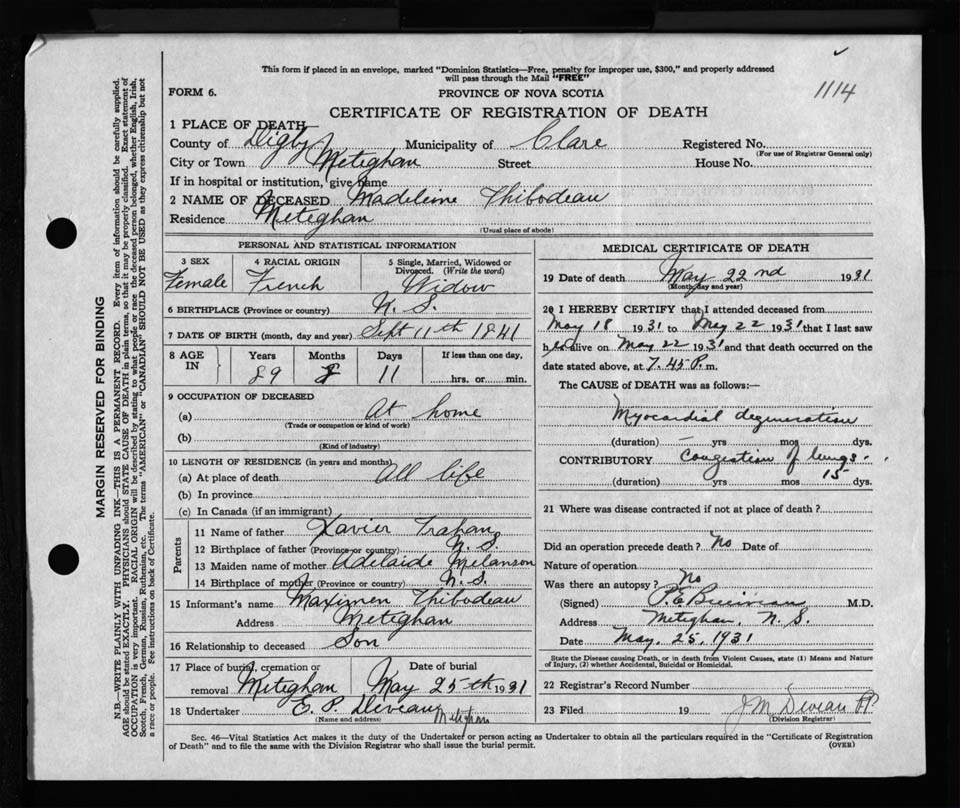 This form if placed in an envelope, marked "Dominion Statistics—Free, penalty for improper use, $300," and properly addressed
will pass through the Mail "FREE"
1114
FORM 6.
PROVINCE OF NOVA SCOTIA
CERTIFICATE OF REGISTRATION OF DEATH
1 PLACE OF DEATH
County of Digby Municipality of Clare Registered No.
(For use of Registrar General only)
City or Town Meteghan Street House No.
If in hospital or institution, give name
2 NAME OF DECEASED Madeleine Thibodeau
Residence Meteghan
(Usual place of abode)
PERSONAL AND STATISTICAL INFORMATION
3 SEX 4 RACIAL ORIGIN 5 Single, Married, Widowed or
Divorced. (Write the word)
Female French Widow
6 BIRTHPLACE (Province or country) N. S.
7 DATE OF BIRTH (month, day and year) Sept 11th 1841
8 AGE IN Years Months Days If less than one day,
89 8 11 hrs. or min.
9 OCCUPATION OF DECEASED
(a) At home
(Trade or occupation or kind of work)
(b)
(Kind of industry)
10 LENGTH OF RESIDENCE (in years and months)
(a) At place of death All life
(b) In province
(c) In Canada (if an immigrant)
Parents
11 Name of father Xavier Trahan
12 Birthplace of father (Province or country) N. S.
13 Maiden name of mother Adelaide Melanson
14 Birthplace of mother (Province or country) N. S.
15 Informant's name Maximen Thibodeau
Address Meteghan
16 Relationship to deceased Son
17 Place of burial, cremation or Date of burial
removal Meteghan May 25th 1931
18 Undertaker E. P. Deveau Meteghan
(Name and address)
MEDICAL CERTIFICATE OF DEATH
19 Date of death May 22nd 1931
(Month, day and year)
20 I HEREBY CERTIFY that I attended deceased from
May 18 1931 to May 22 1931 that I last saw
her alive on May 22 1931 and that death occurred on the
date stated above, at 7.45 P. m.
The CAUSE of DEATH was as follows:—
Myocardial degeneration
(duration) — yrs mos dys.
CONTRIBUTORY Congestion of lungs
(duration) yrs mos 15 dys.
21 Where was disease contracted if not at place of death?
Did an operation precede death? No Date of
Nature of operation
Was there an autopsy? No
(Signed) P. E. M.D.
Address Meteghan, N. S.
Date May, 25, 1931
State the Disease causing Death, or in death from Violent Causes, state (1) Means and Nature
of Injury, (2) whether Accidental, Suicidal or Homicidal.
22 Registrar's Record Number
23 Filed 19 J M Deveau
(Division Registrar)
Sec. 46—Vital Statistics Act makes it the duty of the Undertaker or person acting as Undertaker to obtain all the particulars required in the "Certificate of Registration
of Death" and to file the same with the Division Registrar who shall issue the burial permit.
(OVER)
MARGIN RESERVED FOR BINDING
N.B.—WRITE PLAINLY WITH UNFADING INK—THIS IS A PERMANENT RECORD. Every item of information should be carefully supplied.
AGE should be stated EXACTLY. PHYSICIANS should STATE CAUSE OF DEATH in plain terms, so that it may be properly classified. Exact statement of
OCCUPATION is very important. RACIAL ORIGIN will be described by stating to what people or race the deceased person belonged, whether English, Irish,
Scotch, French, German, Russian, Ruthenian, etc. The terms "AMERICAN" or "CANADIAN" SHOULD NOT BE USED as they express citizenship but not
a race or people. See instructions on back of Certificate.